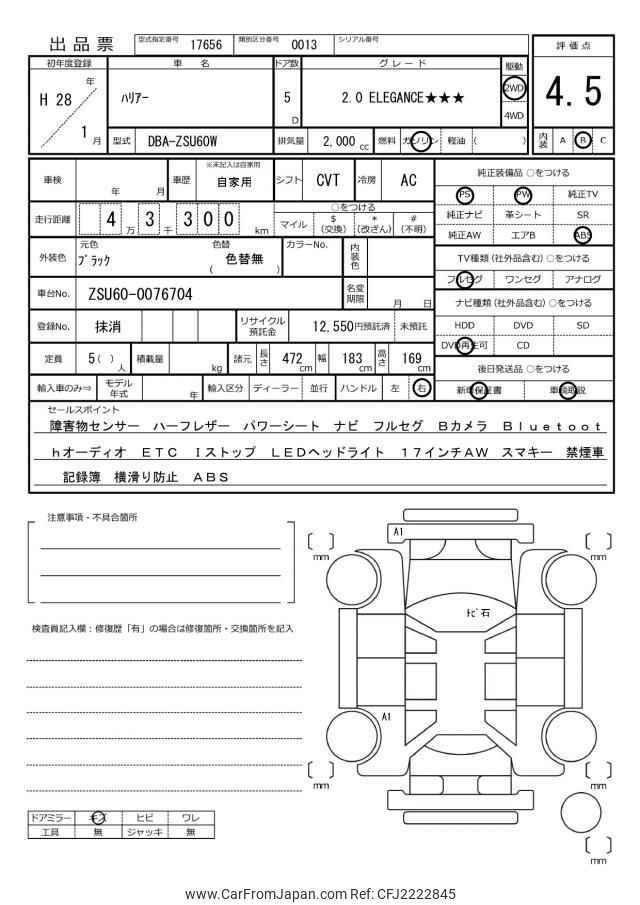 出品票
型式指定番号 17656 類別区分番号 0013 シリアル番号
評価点
4.5
内装 A B C
初年度登録 車名 ドア数 グレード 駆動
H 28 年 / 1 月 ﾊﾘｱｰ 5 D 2.0 ELEGANCE★★★ 2WD
4WD
型式 DBA-ZSU60W 排気量 2,000 cc 燃料 ガソリン 軽油 ( )
車検 年 月 車歴 ※未記入は自家用 自家用 シフト CVT 冷房 AC
走行距離 4 万 3 千 300 km
○をつける
マイル $ (交換) * (改ざん) # (不明)
外装色 元色 ﾌﾞﾗｯｸ 色替 ( 色替無 ) カラーNo. 内装色
車台No. ZSU60-0076704 名変期限 月 日
登録No. 抹消 リサイクル預託金 12,550円預託済 未預託
定員 5( ) 人 積載量 kg 諸元 長さ 472 cm 幅 183 cm 高さ 169 cm
輸入車のみ⇒ モデル年式 年 輸入区分 ディーラー 並行 ハンドル 左 右
純正装備品 ○をつける
PS PW 純正TV
純正ナビ 革シート SR
純正AW エアB ABS
TV種類 (社外品含む) ○をつける
フルセグ ワンセグ アナログ
ナビ種類 (社外品含む) ○をつける
HDD DVD SD
DVD再生可 CD
後日発送品 ○をつける
新車保証書 車輌取説
セールスポイント
障害物センサー ハーフレザー パワーシート ナビ フルセグ Bカメラ Ｂｌｕｅｔｏｏｔ
ｈオーディオ ＥＴＣ Ｉストップ ＬＥＤヘッドライト １７インチAW スマキー 禁煙車
記録簿 横滑り防止 ＡＢＳ
注意事項・不具合箇所
検査員記入欄：修復歴「有」の場合は修復箇所・交換箇所を記入
A1
ﾄﾋﾞ石
A1
mm
mm
mm
mm
mm
ドアミラー キズ ヒビ ワレ
工具 無 ジャッキ 無
www.CarFromJapan.com Ref: CFJ2222845